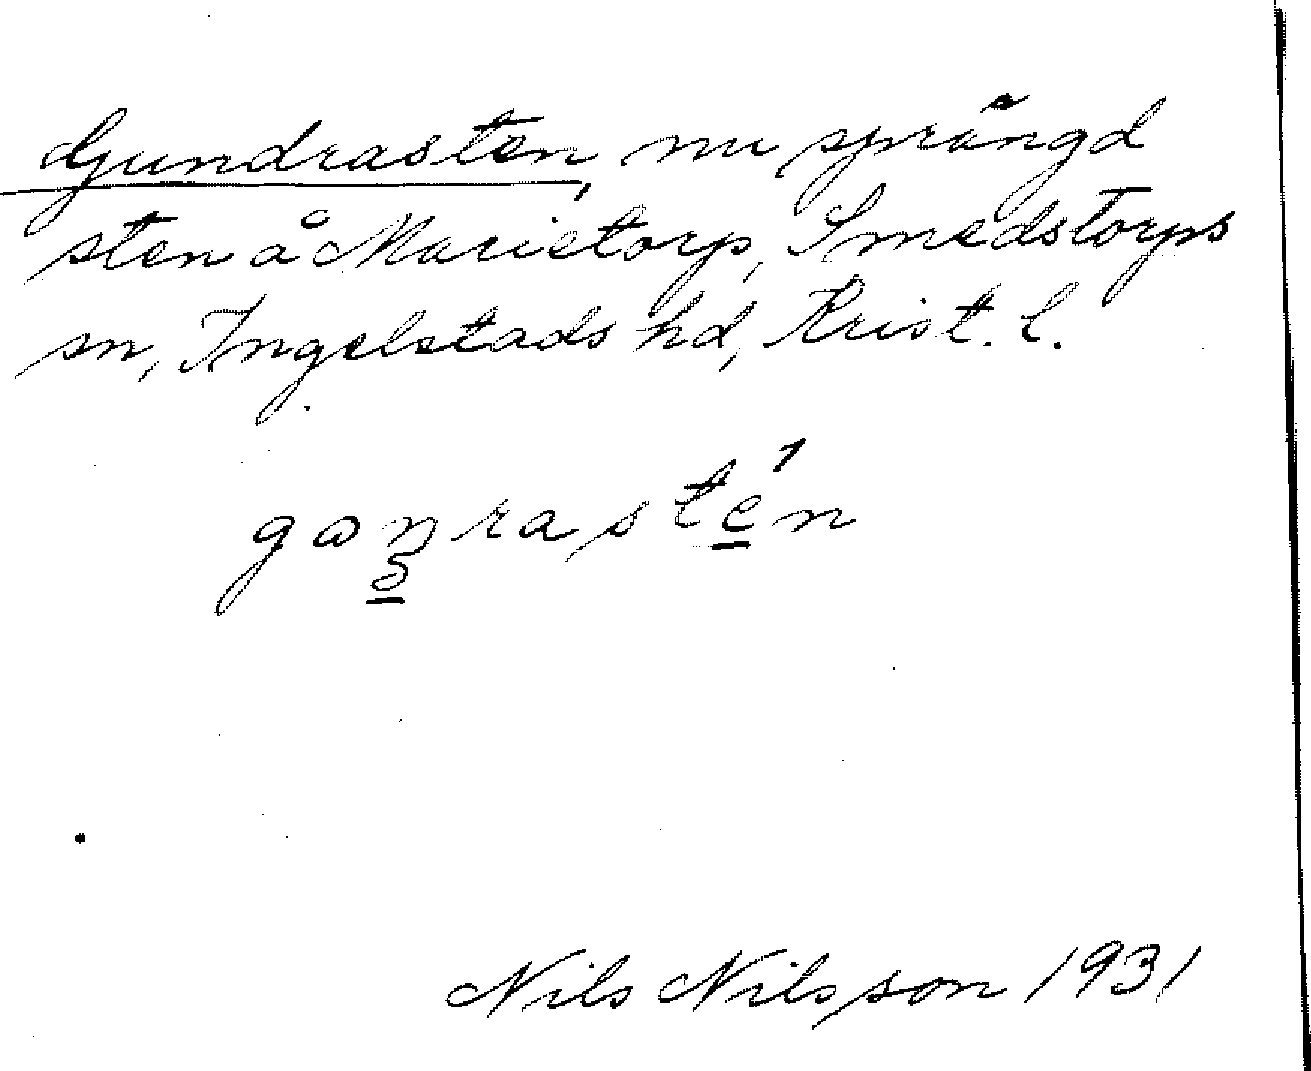 Gundrasten, nu sprängd
sten å Marietorp, Smedstorps
sn, Ingelstads hd, Krist. l.
gɷnrastén
Nils Nilsson 1931